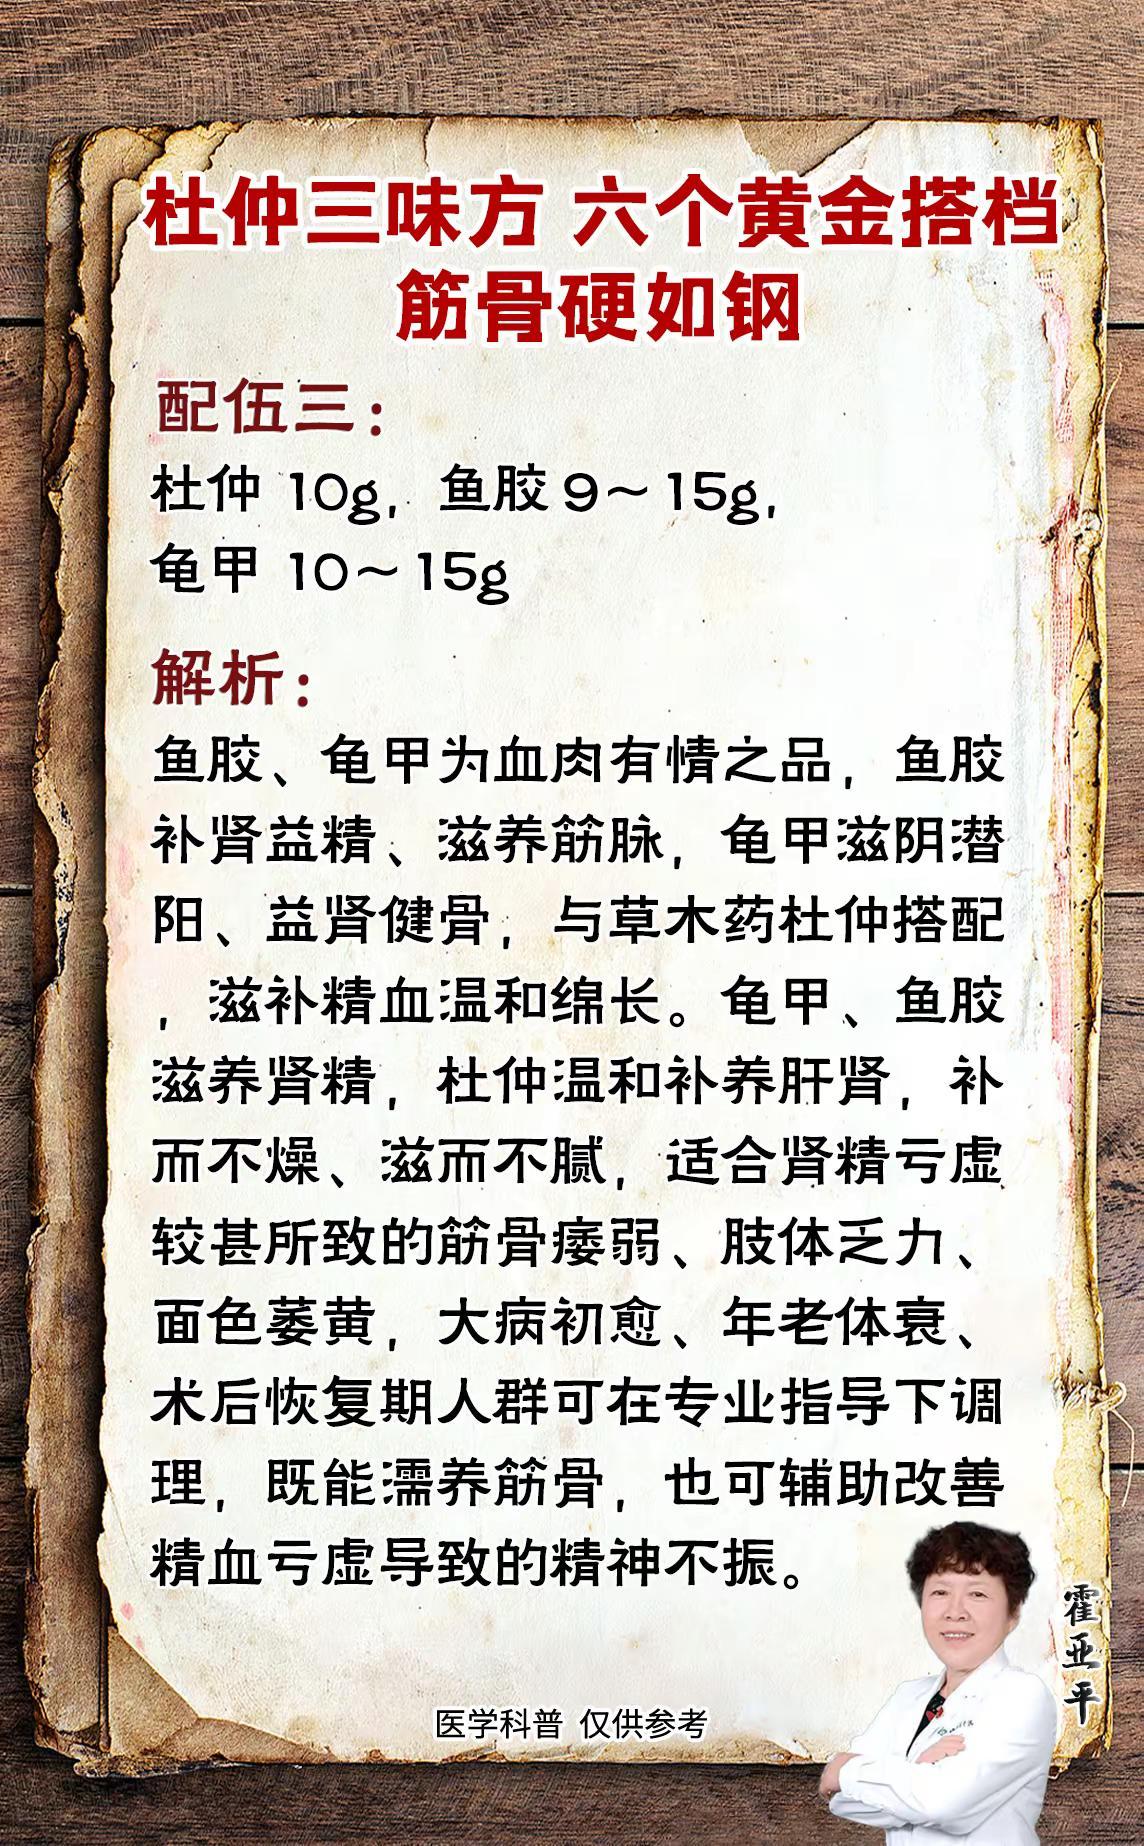 杜仲三味方 六个黄金搭档
筋骨硬如钢
配伍三：
杜仲 10g，鱼胶9～15g，
龟甲 10～15g
解析：
鱼胶、龟甲为血肉有情之品，鱼胶
补肾益精、滋养筋脉，龟甲滋阴潜
阳、益肾健骨，与草木药杜仲搭配
，滋补精血温和绵长。龟甲、鱼胶
滋养肾精，杜仲温和补养肝肾，补
而不燥、滋而不腻，适合肾精亏虚
较甚所致的筋骨痿弱、肢体乏力、
面色萎黄，大病初愈、年老体衰、
术后恢复期人群可在专业指导下调
理，既能濡养筋骨，也可辅助改善
精血亏虚导致的精神不振。
霍亚平
医学科普 仅供参考